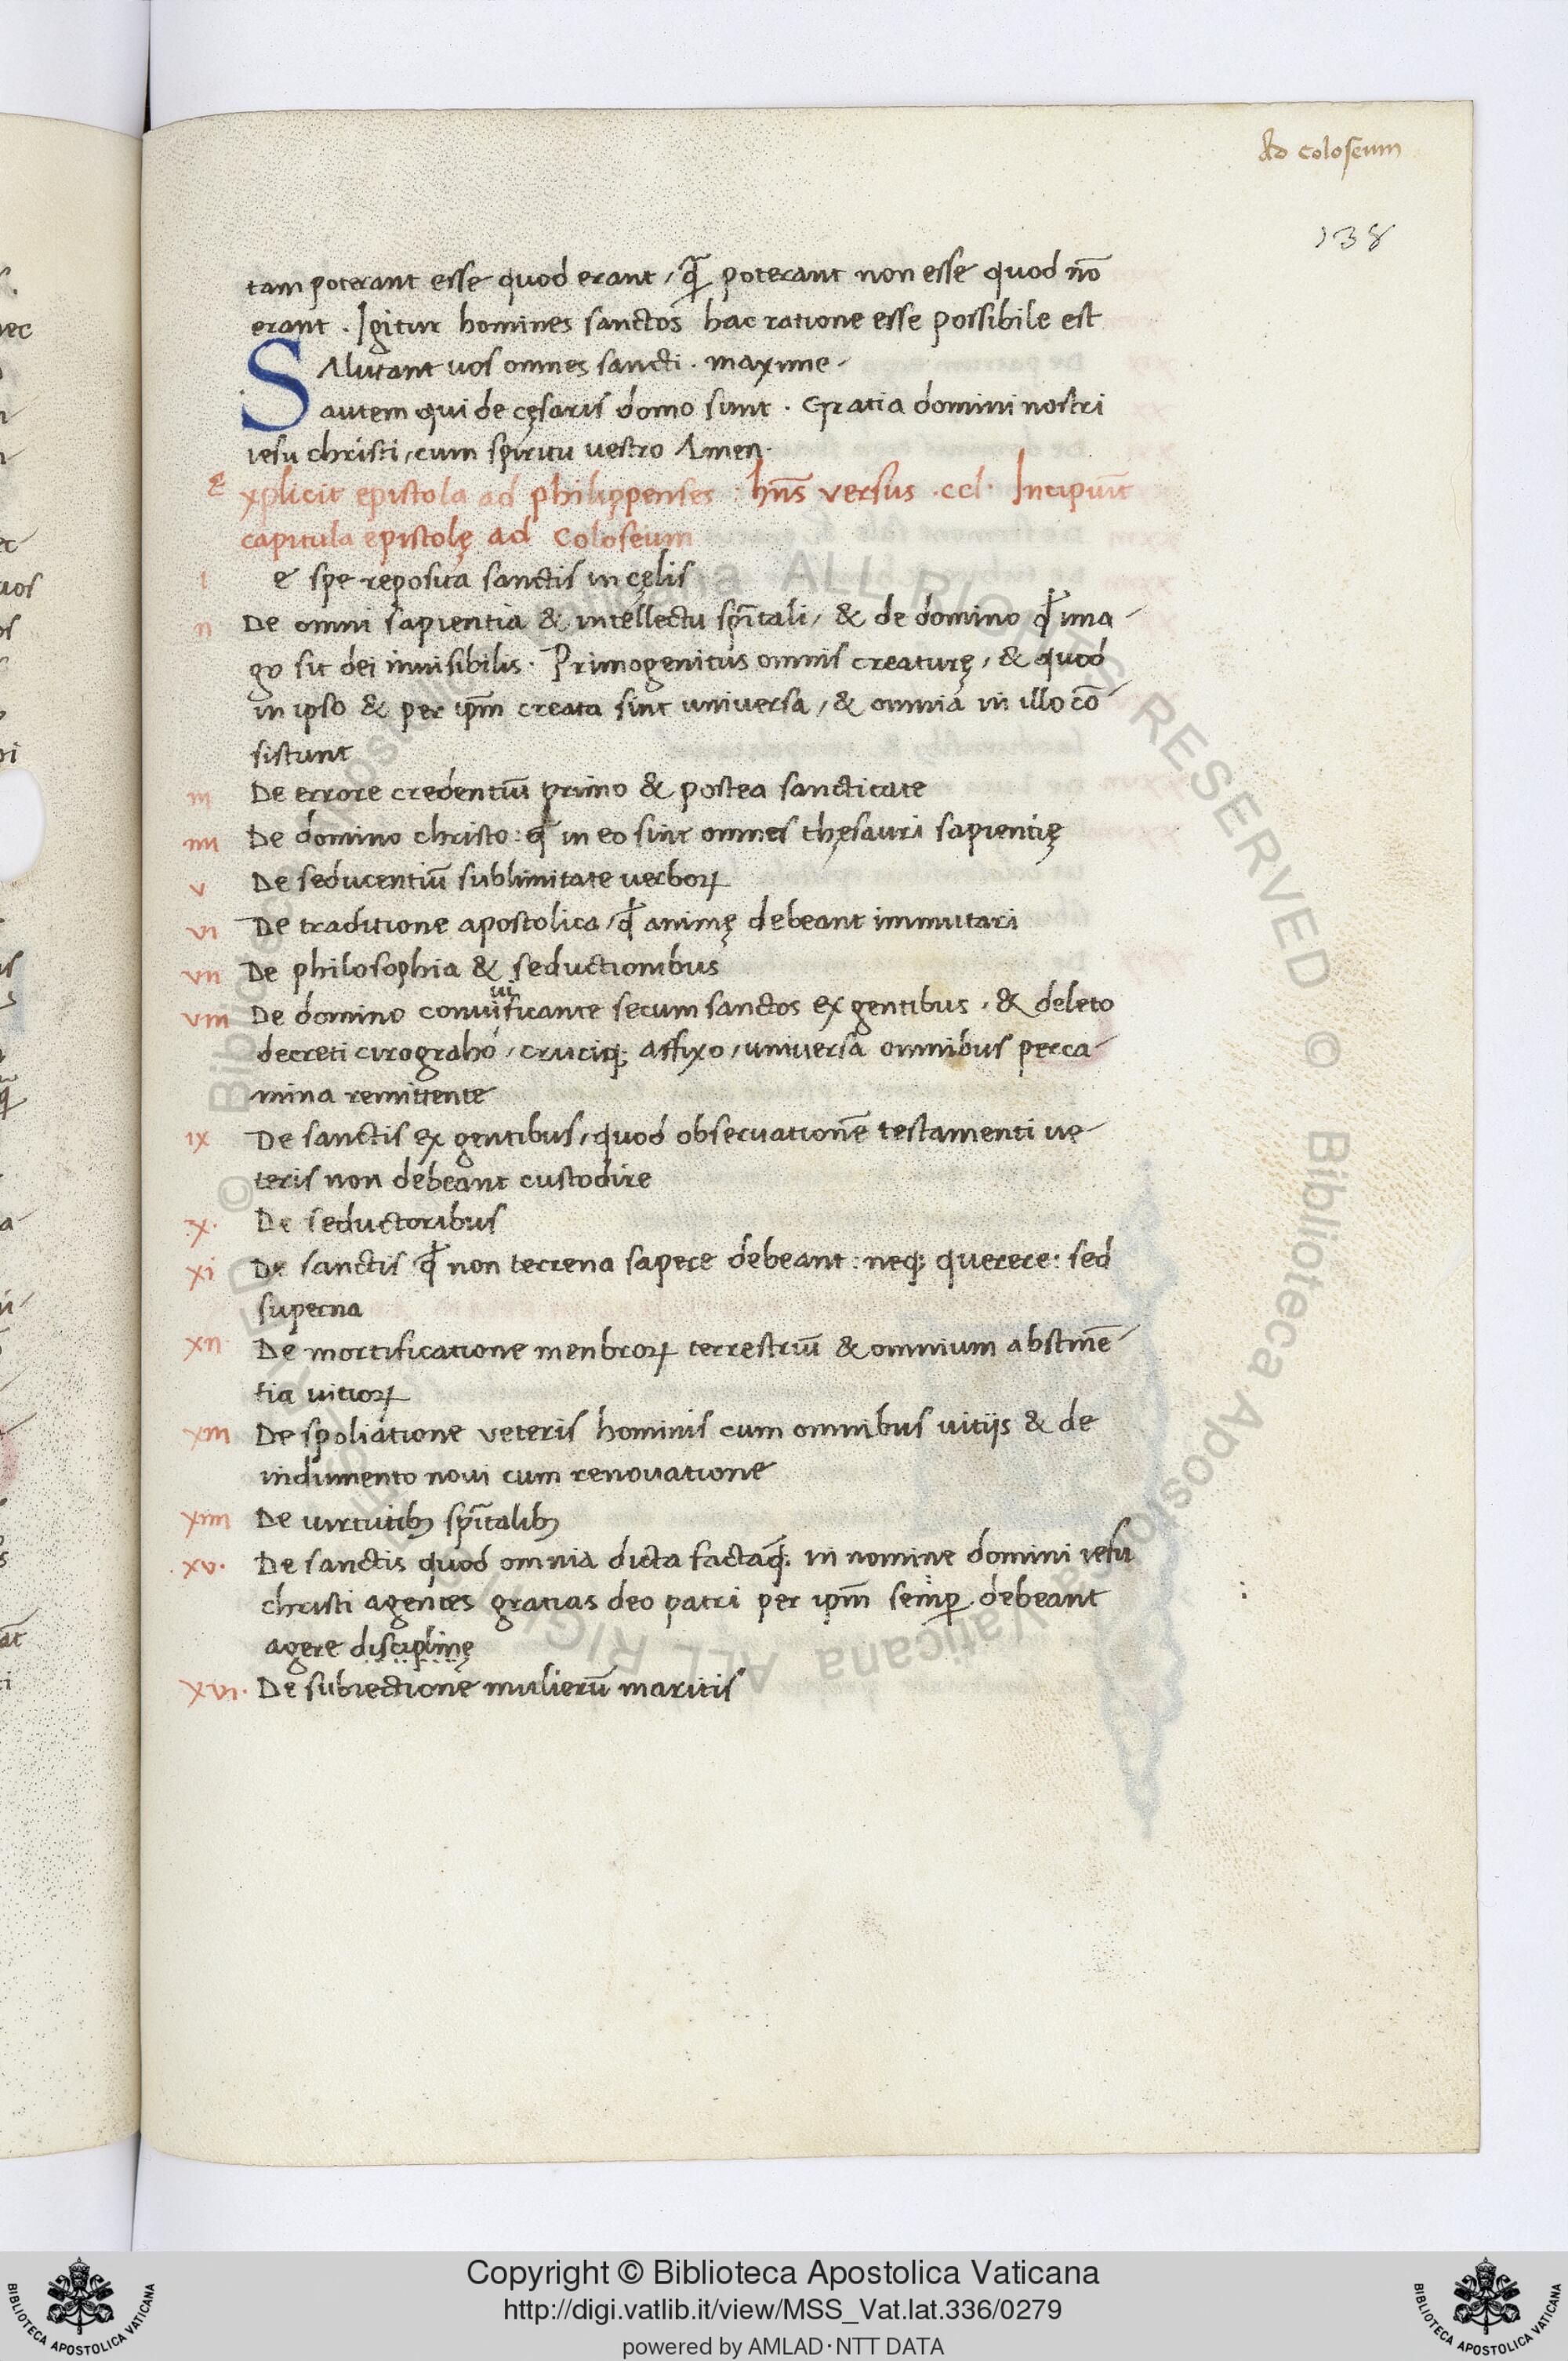 Ad coloseum
138
tam poterant esse quod erant / qͣ̃ poterant non esse quod nō
erant . Igitur homines sanctos hac ratione esse possibile est
SAlutant uos omnes sancti . maxime
autem qui de cęsaris domo sunt . Gratia domini nostri
iesu christi / cum spiritu vestro Amen .
Explicit epistola ad philippenses : hn̄s versus .ccl. Incipiūt
capitula epistolę ad Coloseum
I e spe reposita sanctis in cęlis
II De omni sapientia & intellectu spūtali / & de domino qđ ima
go sit dei inuisibilis . Primogenitus omnis creaturę / & quod
in ipso & per ipm̄ creata sint universa / & omnia in illo cō
sistunt
III De errore credentiū primo & postea sanctitate
IIII De domino christo : qđ in eo sint omnes thęsauri sapientię
V De seducentiū sublimitate verboꝝ
VI De traditione apostolica / qđ animę debeant immutari
VII De philosophia & seductionibus
VIII De domino conuiuificante secum sanctos ex gentibus . & deleto
decreti cirograho / cruciq; affixo / universa omnibus pecca
mina remittente
IX De sanctis ex gentibus / quod obseruationē testamenti ue
teris non debeant custodire
.X. De seductoribus
XI De sanctis qđ non terrena sapere debeant : neq; querere : sed
superna
XII De mortificatione menbroꝝ terrestriū & omnium abstinē
tia uitioꝝ
XIII De spoliatione veteris hominis cum omnibus uitijs & de
indumento noui cum renouatione
XIIII De uirtutibꝫ spūtalibꝫ
.XV. De sanctis quod omnia dicta factaq; in nomine domini iesu
christi agentes gratias deo patri per ipm̄ semꝑ debeant
agere disciplinę
XVI. De subiectione mulierū maritis
Copyright © Biblioteca Apostolica Vaticana
http://digi.vatlib.it/view/MSS_Vat.lat.336/0279
powered by AMLAD·NTT DATA
BIBLIOTECA APOSTOLICA VATICANA
BIBLIOTECA APOSTOLICA VATICANA